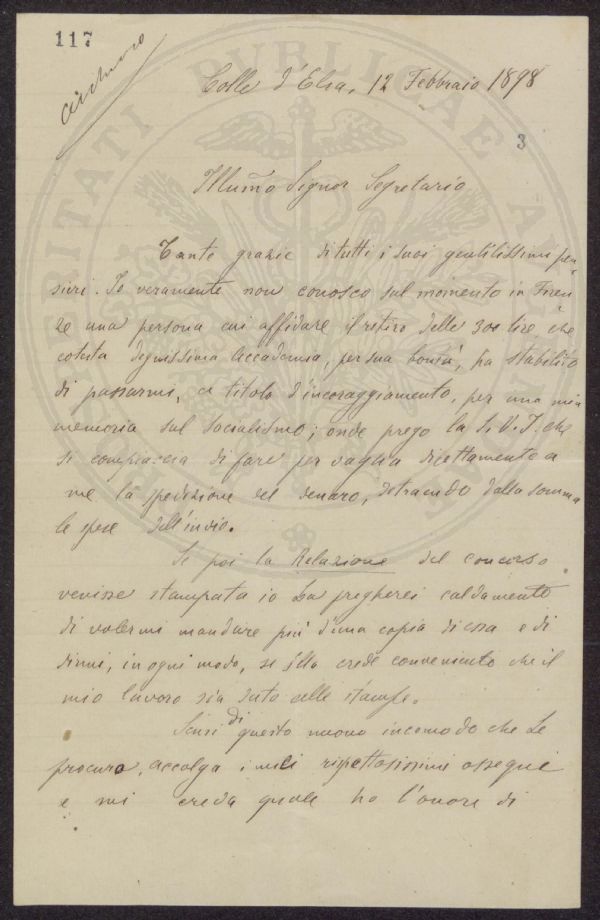 117
Colle d'Elsa, 12 Febbraio 1898
3
Illmo Signor Segretario
Tante grazie di tutti i suoi gentilissimi pen-
sieri. Io veramente non conosco sul momento in Firen-
ze una persona cui affidare il ritiro delle 300 lire che
cotesta degnissima Accademia, per sua bontà, ha stabilito
di passarmi, a titolo d'incoraggiamento, per una mia
memoria sul socialismo; onde prego la S. V. I. che
si compiaccia di fare per vaglia direttamente a
me la spedizione del denaro, detraendo dalla somma
le spese dell'invio.
Se poi la Relazione del concorso
venisse stampata io La pregherei caldamente
di volermi mandare più d'una copia di essa e di
dirmi, in ogni modo, se Ella crede conveniente che il
mio lavoro sia dato alle stampe.
Scusi di questo nuovo incomodo che Le
procuro, accolga i miei rispettosissimi ossequi
e mi creda quale ho l'onore di
PUBLICAE